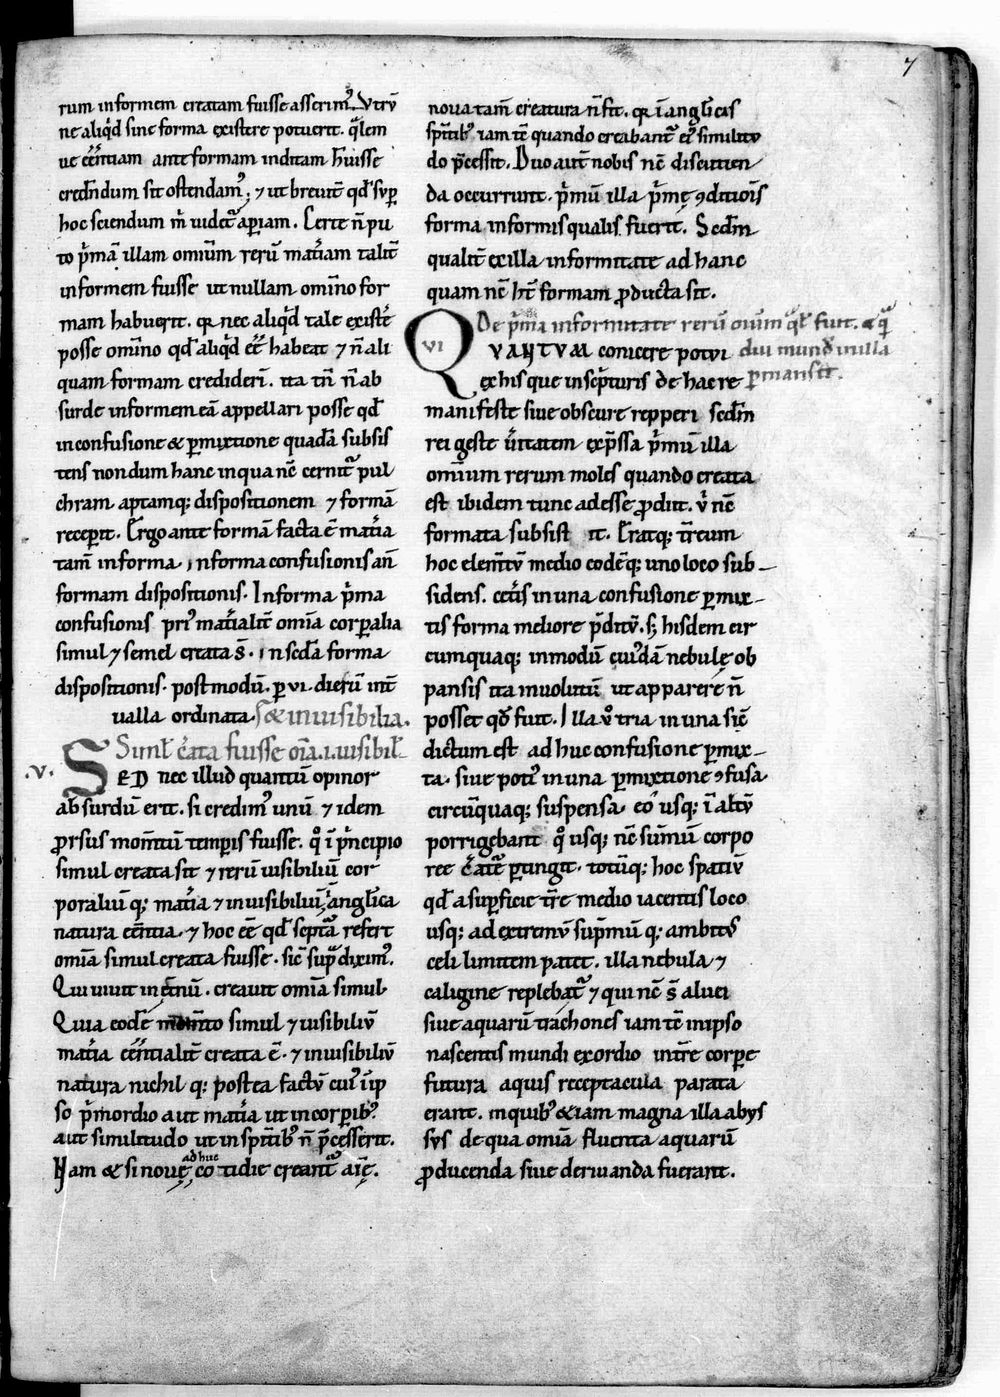 7
rum informem creatam fuisse asserim᷒. Vtrū
ne aliqͥd sine forma existere potuerit. qͣlem
ue eēntiam ante formam inditam h̄uisse
credn̄dum sit ostendam᷒. ⁊ ut breuit̄ qd̄ suꝑ
hoc sciendum m̄ uidet᷒ aꝑiam. Certe n̄ pu
to pͥmā illam omiūm rerū mat̄iam talit̄
informem fuisse ut nullam omīno for
mam habuerit. qꝛ nec aliqͥd tale existe͛
posse omīno qd̄ aliqͥd eē habeat ⁊ n̄ ali
quam formam crediderī. ita tn̄ n̄ ab
surde informem eā appellari posse qd̄
in confusione & ꝑmixtione quadā subsis
tens nondum hanc in qua nc̄ cernit᷒ pul
chram aptamq; dispositionem ⁊ formā
receꝑit. Ergo ante formā facta ē mat̄ia
tam̄ in forma. in forma confusionis an̄
formam dispositionis. In forma pͥma
confusionis pri᷒ mat̄ialit̄ omīa corꝑalia
simul ⁊ semel creata s̄. in sc̄da forma
dispositionis. postmodū. ꝑ vi. dierū int̄
ualla ordinata. & inuisibilia.
Siml̄ c̄ata fuisse oīa .i. uisibil̄
.v. SED nec illud quantū opinor
absurdū erit. si credim᷒ unū ⁊ idem
ꝓrsus momt̄ū temꝑis fuisse. qͦ ī pͥncipio
simul creata sit ⁊ rerū uisibiliū cor
poraliū q; mat̄ia ⁊ inuisibiliū ī angl̄ica
natura eēntia. ⁊ hoc eē qd̄ sc̄ptͣa refert
omīa simul creata fuisse. sic̄ supͣ dixim᷒.
Qui uiuit in et̄nū. creauit omīa simul.
Quia eodē simul ⁊ uisibiliū
mat̄ia eēntialit̄ creata ē. ⁊ inuisibiliū
natura nichil q; postea factū cui᷒ ī ip
so pͥmordio aut mat̄ia ut in corꝑib᷒
aut similitudo ut in spīrtib᷒ n̄ pͥcesserit.
adhuc
Nam & si nouę cotidie creant᷒ aīę.
noua tam̄ creatura n̄ fit. qꝛ ī angl̄icis
spīrtib᷒ iam tē quando creabant᷒ ei᷒ similitu
do pͥcessit. Duo aut̄ nobis nc̄ discutien
da occurrunt. pͥmū illa pͥmę ꝯditiōis
forma informis qualis fuerit. Sc̄dm
qualit̄ ex illa informitate ad hanc
quam nc̄ ht̄ formam ꝓducta sit.
De pͥma informitate rerū oīum ql̄ fuit. & qͣ
vi QVANTVM conicere potui diu mund᷒ in illa
ex his que in scͥpturis de hac re ꝑmansit.
manifeste siue obscure repperi sc̄dm
rei geste u͛itatem exp̄ssa pͥmū illa
omīum rerum moles quando creata
est ibidem tunc ad esse ꝓdiit. ubͥ nc̄
formata subsistit. Eratq; t͛reum
hoc elem̄tū medio eodēq; uno loco sub
sidens. cet͛is in una confusione ꝑmix
tis forma meliore p̄ditū. s; hisdem cir
cumquaq; in modū cui᷒dā nebulę ob
pansis ita inuolutū ut apparere n̄
posset qd̄ fuit. Illa u͛o tria in una sic̄
dictum est adhuc confusione ꝑmix
ta. siue poti᷒ in una ꝑmixtione ꝯfusa
circūquaq; suspensa. eo usq; ī altū
porrigebant qͦ usq; nc̄ summū corpo
ree c͛atͣe ꝑtingit. totūq; hoc spatiū
qd̄ a suꝑficie t͛re medio iacentis loco
usq; ad extremū supͥmū q; ambitū
celi limitem patet. illa nebula ⁊
caligine replebat᷒ ⁊ qui nc̄ s̄ aluei
siue aquarū trachones iam tē in ipso
nascentis mundi exordio int͛re corꝑe
futura aquis receptacula parata
erant. in quib᷒ etiam magna illa abys
sus de qua omīa fluenta aquarū
ꝓducenda siue deriuanda fuerant.